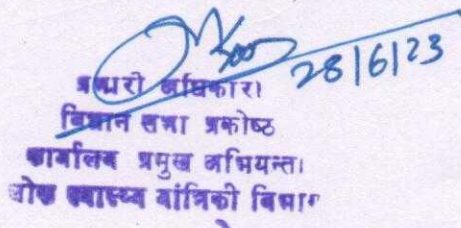 28/6/23
प्रभारी अधिकारी
विधान सभा प्रकोष्ठ
कार्यालय प्रमुख अभियन्ता
लोक स्वास्थ्य यांत्रिकी विभाग